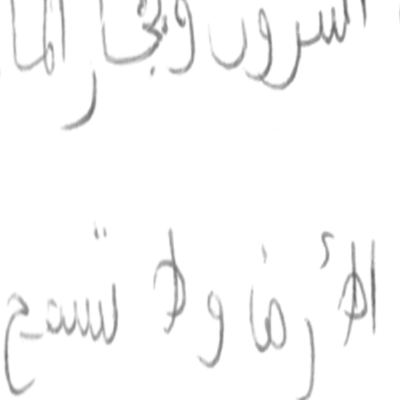 البترول وبخار الما
الأرض ولا تسمح